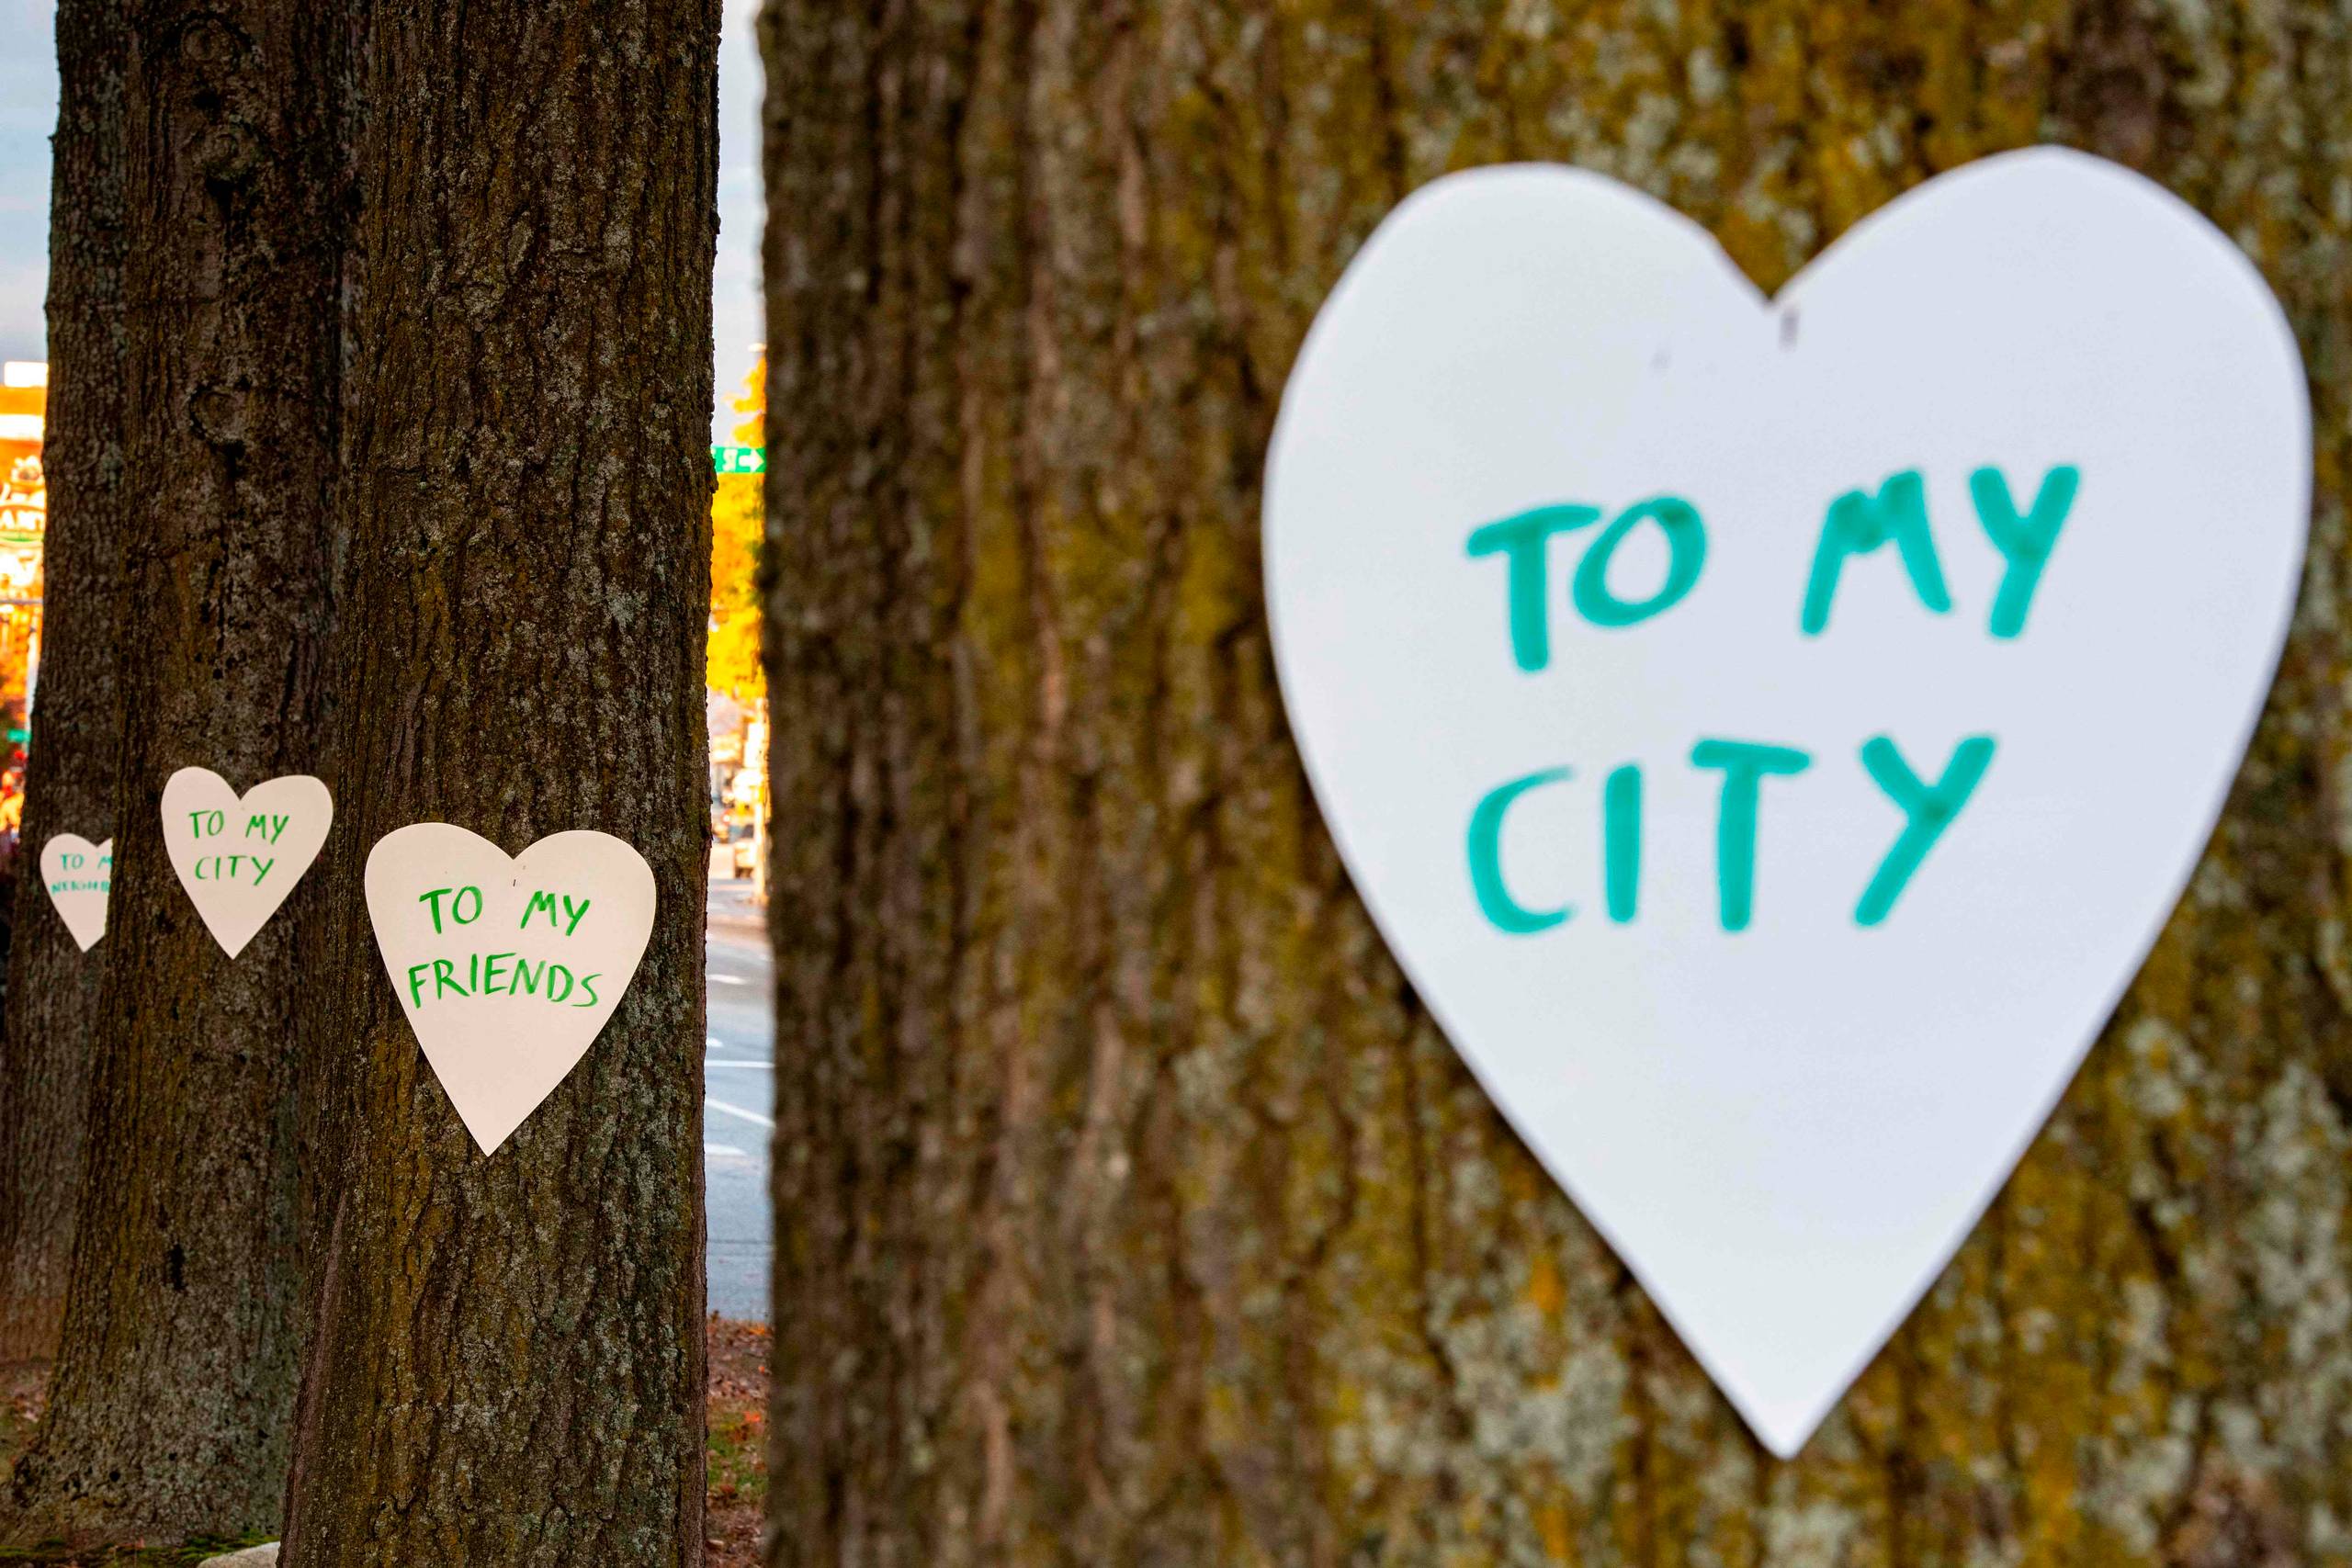 TO
TO MY
CITY
TO MY
FRIENDS
TO MY
CITY